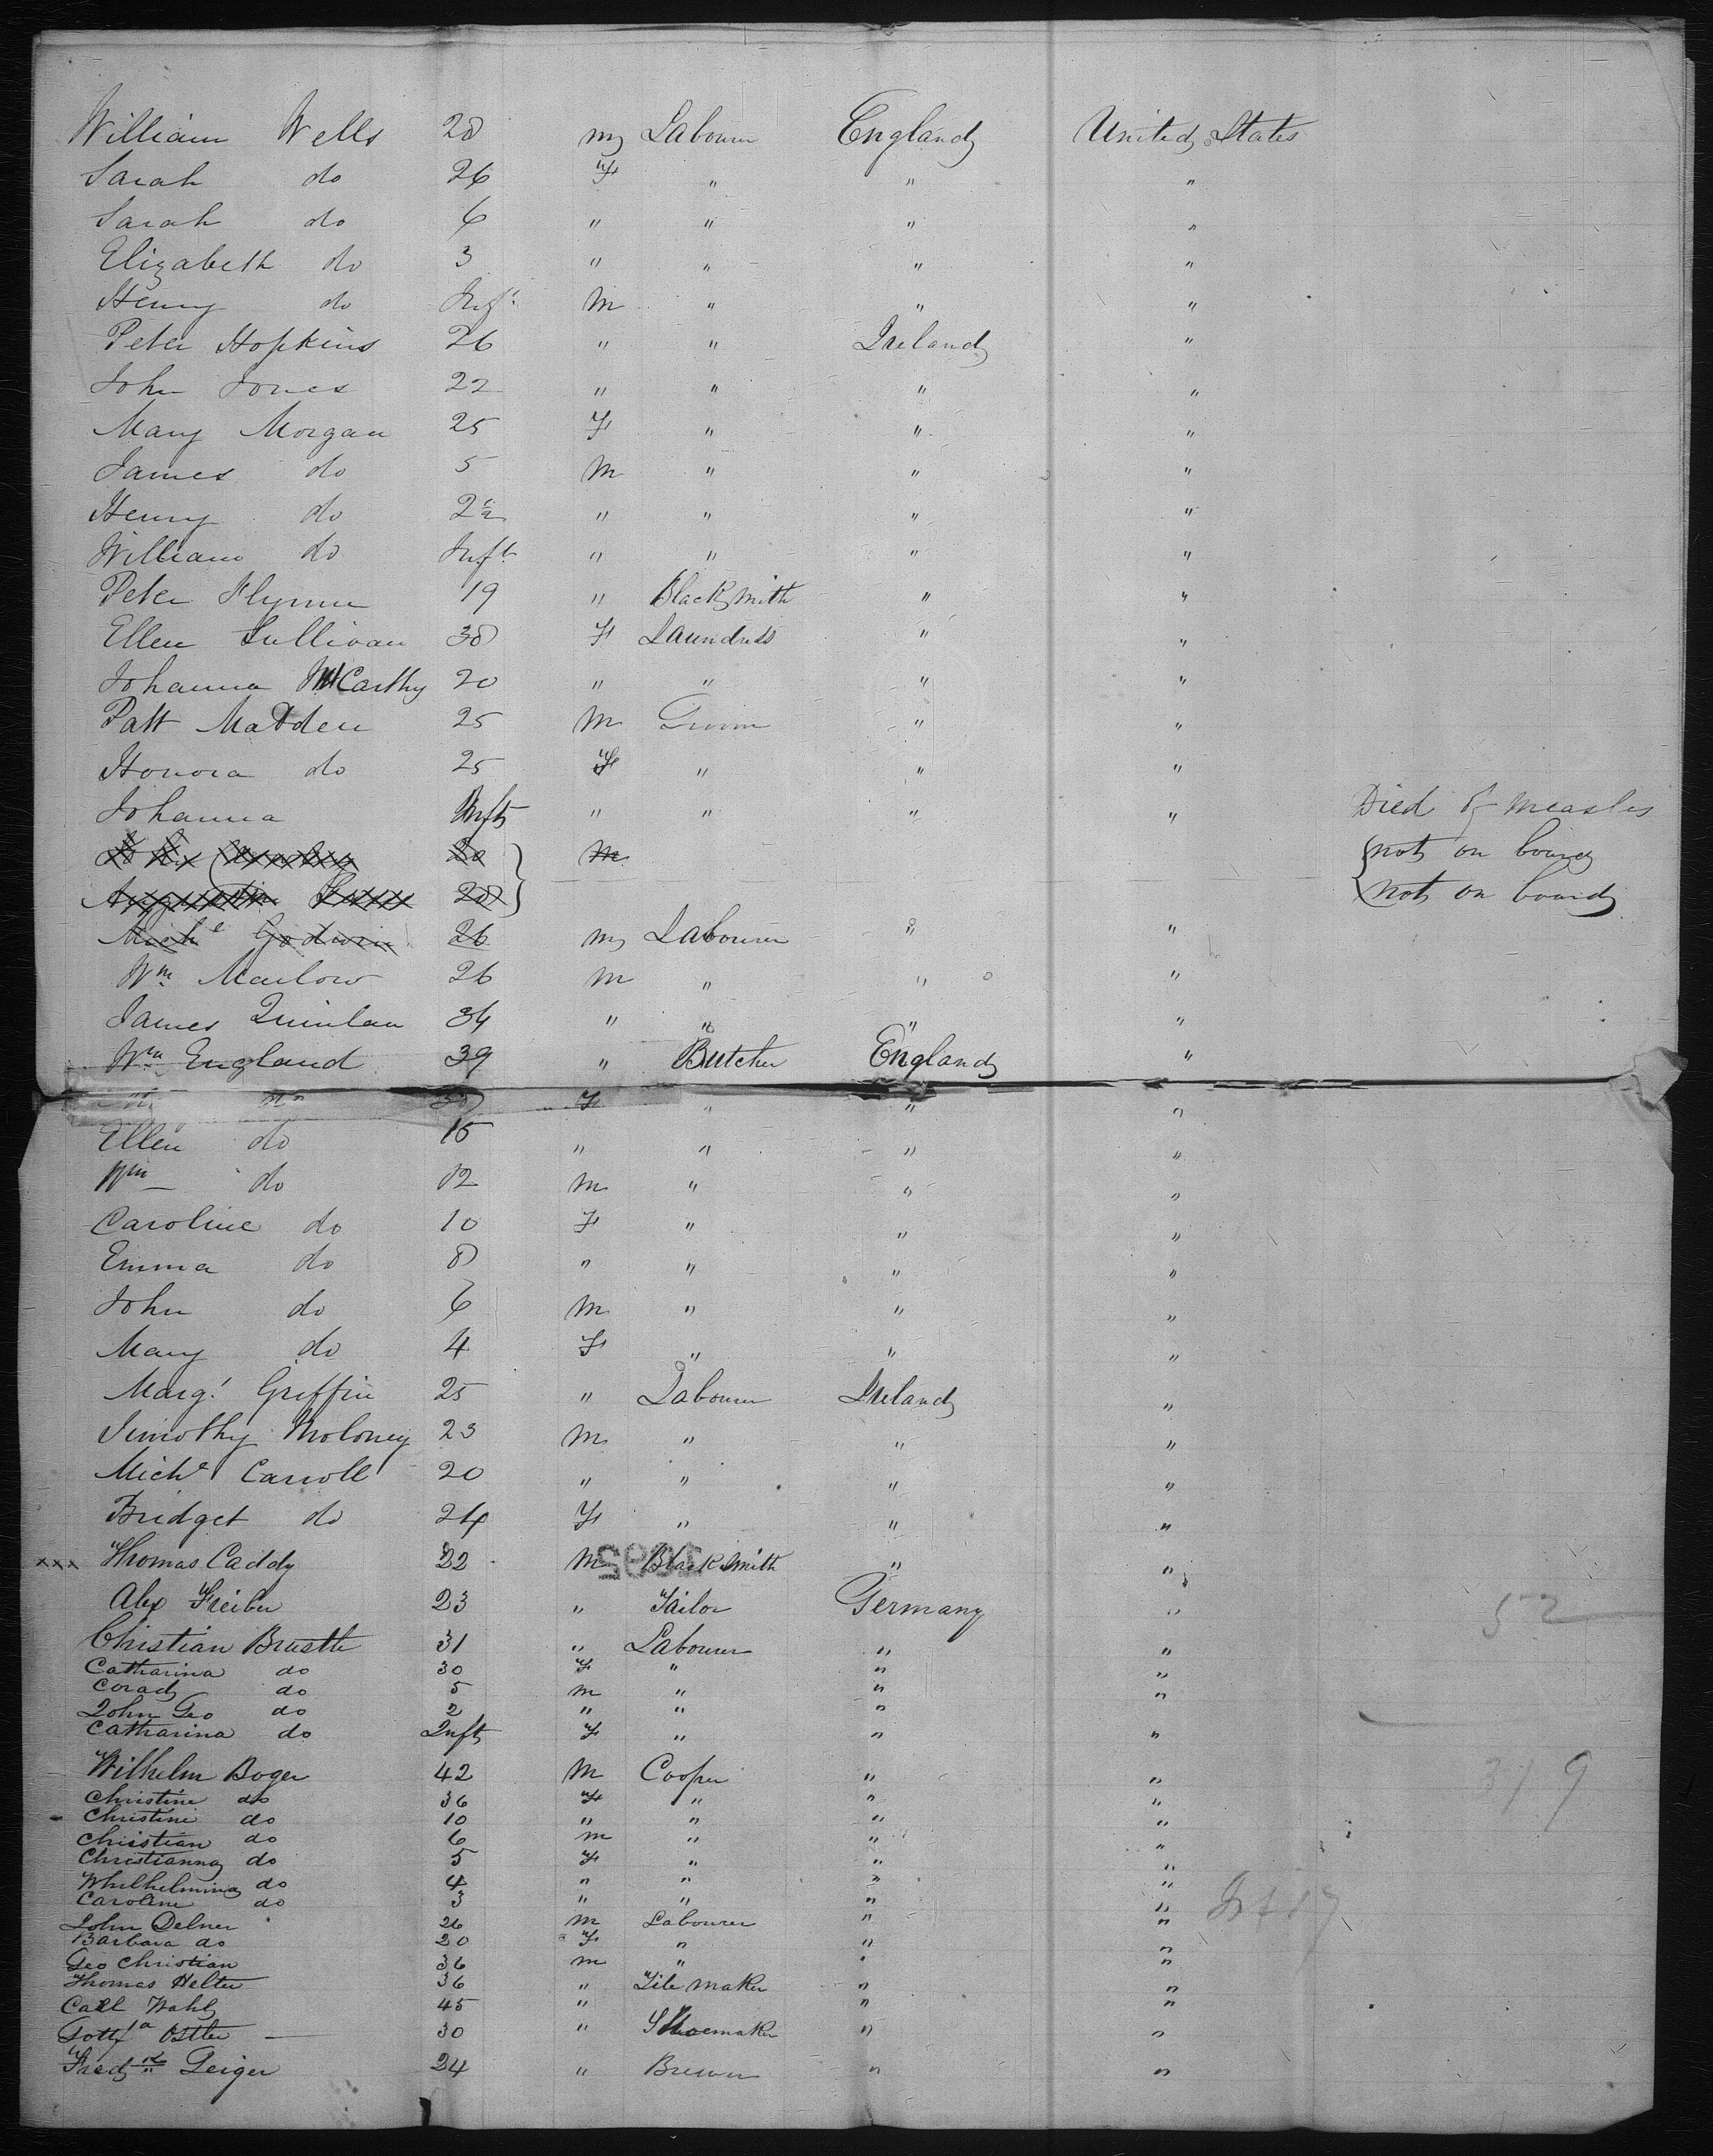 William Wells 28 m Labourer England United States
Sarah do 26 F " " "
Sarah do 6 " " " "
Elizabeth do 3 " " " "
Henry do Inft M " " "
Peter Hopkins 26 " " Ireland "
John Jones 22 " " " "
Mary Morgan 25 F " " "
James do 5 M " " "
Henry do 2½ " " " "
William do Inft " " " "
Peter Flynn 19 " Blacksmith " "
Ellen Sullivan 38 F Laundress " "
Johanna McCarthy 20 " " " "
Patt Madden 25 M Groom " "
Honora do 25 F " " "
Johanna Inft " " " " Died of measles
20 m not on board
28 not on board
Michl Godwin 26 m Labourer " "
Wm Marlow 26 M " " "
James Quinlan 34 " " " "
Wm England 39 " Butcher England "
do 38 F " " "
Ellen do 15 " " " "
Wm do 12 M " " "
Caroline do 10 F " " "
Emma do 8 " " " "
John do 6 M " " "
Mary do 4 F " " "
Margt Griffin 25 " Labourer Ireland "
Timothy Moloney 23 M " " "
Michl Carroll 20 " " " "
Bridget do 24 F " " "
xxx Thomas Caddy 22 M Blacksmith " "
Alex Freiber 23 " Tailor Germany " 52
Christian Brustle 31 " Labourer " "
Catharina do 30 F " " "
Corad do 5 M " " "
John Geo do 2 " " " "
Catharina do Inft F " " "
Wilhelm Boger 42 M Cooper " " 319
Christine do 36 F " " "
Christine do 10 " " " "
Christian do 6 m " " "
Christianna do 5 F " " "
Whilhelmina do 4 " " " "
Caroline do 3 " " " "
John Delner 26 M Labourer " "
Barbara do 20 F " " "
Geo Christian 36 m " " "
Thomas Helter 36 " Tile maker " "
Carl Wahl 45 " " "
Gottfd Ostler 30 " Shoemaker " "
Fredk Geiger 24 " Brewer " "